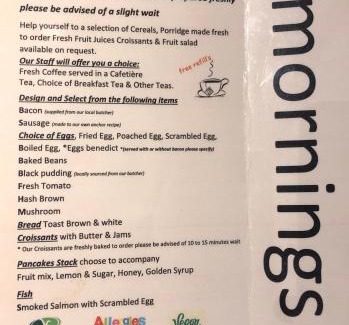 please be advised of a slight wait
Help yourself to a selection of Cereals, Porridge made fresh
to order Fresh Fruit Juices Croissants & Fruit salad
available on request.
Our Staff will offer you a choice:
free refills
Fresh Coffee served in a Cafetière
Tea, Choice of Breakfast Tea & Other Teas.
Design and Select from the following items
Bacon (supplied from our local butcher)
Sausage (made to our own anchor recipe)
Choice of Eggs, Fried Egg, Poached Egg, Scrambled Egg,
Boiled Egg, *Eggs benedict *(served with or without bacon please specify)
Baked Beans
Black pudding (locally sourced from our butcher)
Fresh Tomato
Hash Brown
Mushroom
Bread Toast Brown & white
Croissants with Butter & Jams
* Our Croissants are freshly baked to order please be advised of 10 to 15 minutes wait
Pancakes Stack choose to accompany
Fruit mix, Lemon & Sugar, Honey, Golden Syrup
Fish
Smoked Salmon with Scrambled Egg
Allergies
Vegan
mornings